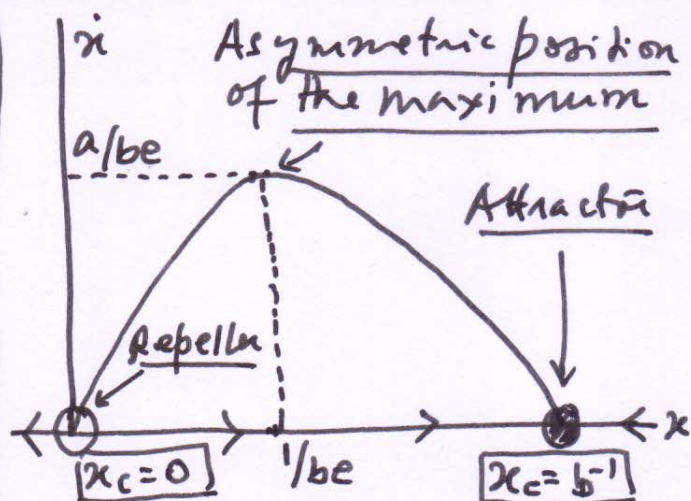 ẋ
Asymmetric position
of the maximum
a/be
Attractor
Repeller
x
x_c=0
1/be
x_c=b⁻¹